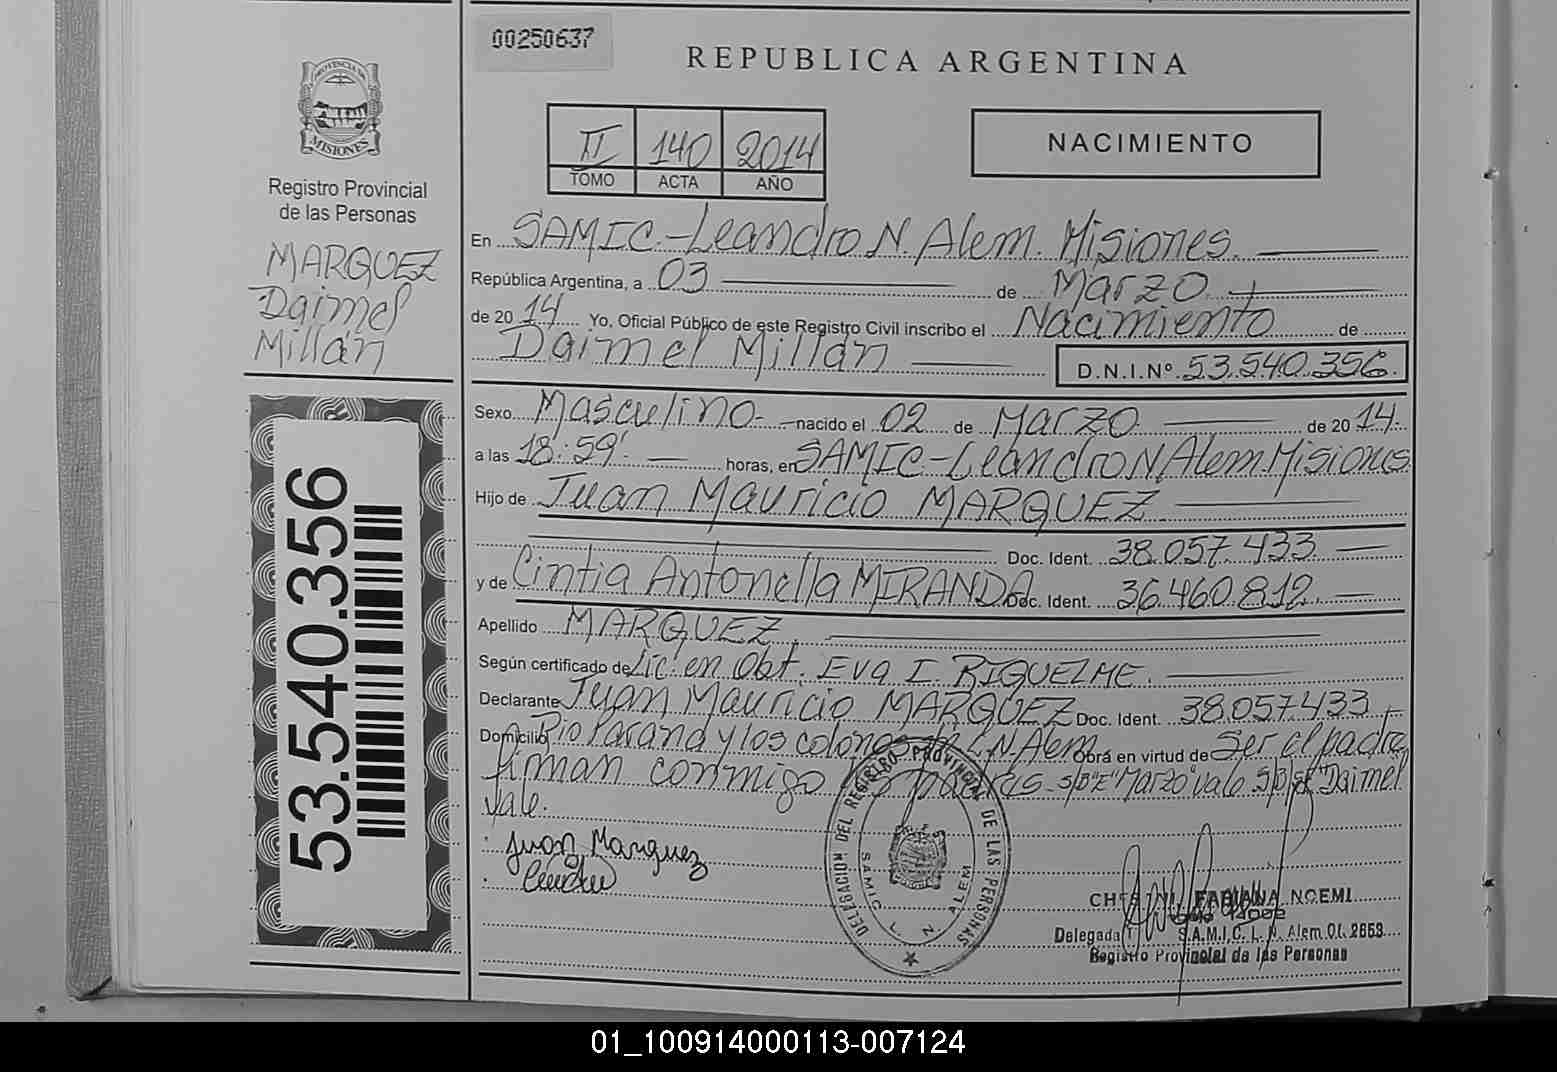 00250637
REPUBLICA ARGENTINA
PROVINCIA DE
MISIONES
Registro Provincial
de las Personas
MARQUEZ
Daimel
Millán
53.540.356
II 140 2014
TOMO ACTA AÑO
NACIMIENTO
En SAMIC.-Leandro N. Alem. Misiones.
República Argentina, a 03 de Marzo
de 20 14 Yo, Oficial Público de este Registro Civil inscribo el Nacimiento de
Daimel Millán D.N.I.Nº 53.540.356.
Sexo Masculino nacido el 02 de Marzo de 20 14.
a las 18:59 horas, en SAMIC-Leandro N. Alem. Misiones.
Hijo de Juan Mauricio MARQUEZ
Doc. Ident. 38.057.433
y de Cintia Antonella MIRANDA Doc. Ident. 36.460.812.
Apellido MARQUEZ.
Según certificado de Lic. en Obt. Eva I. RIQUELME.
Declarante Juan Mauricio MARQUEZ Doc. Ident. 38.057.433
Domicilio Rio Parana y los colonos L.N. Alem Obrá en virtud de Ser el padre
firman conmigo los padres s/B"E"Marzo"vale S/B/SR"Daimel
vale.
Juan Marquez
DELEGACION DEL REGISTRO PROVINCIAL DE LAS PERSONAS
SAMIC L. N. ALEM
FABIANA NOEMI
Delegada S.A.M.I.C. L. N. Alem Of. 2653
Registro Provincial de las Personas
01_100914000113-007124